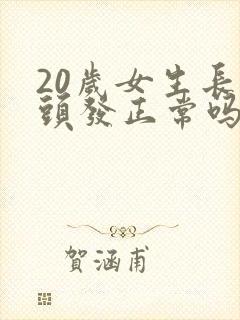 20歲女生長
頭發正常嗎
賀涵甫